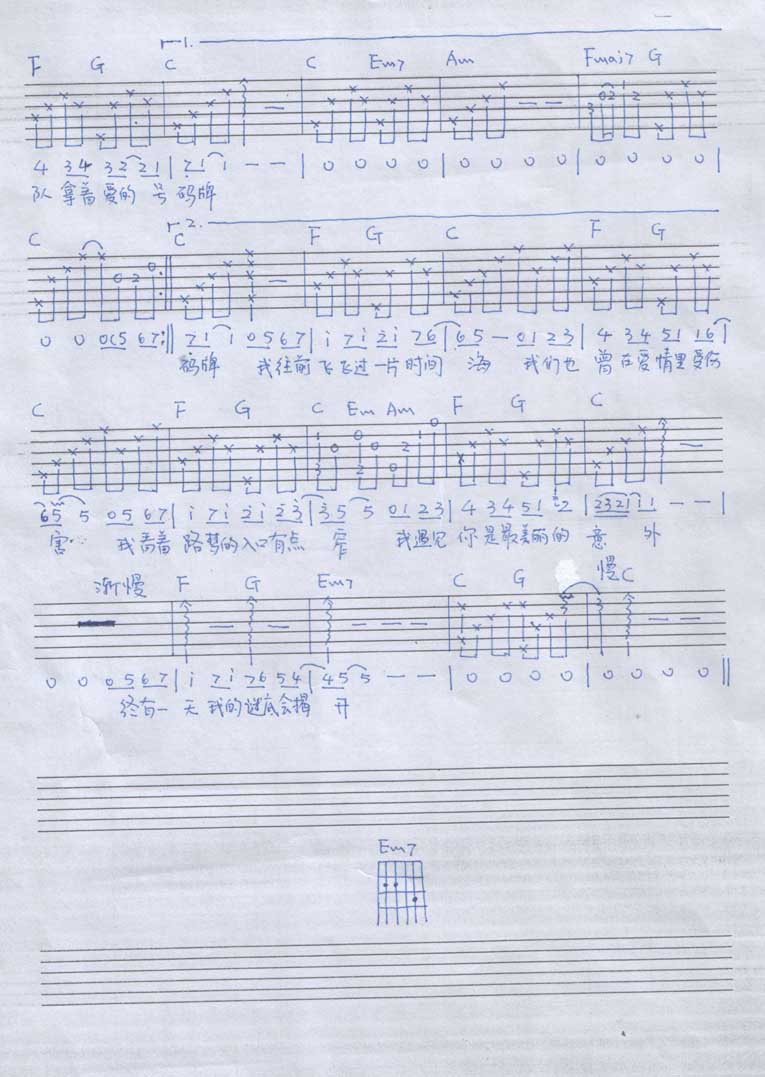 1.
F G C C Em7 Am Fmaj7 G
4 34 32 21 | 7 1 1 - - | 0 0 0 0 | 0 0 0 0 | 0 0 0 0 |
队 拿着爱的 号码牌
2.
C C F G C F G
0 0 005 67 :|| 7 1 1 0 5 6 7 | i 7 i 2 i 7 6 | 6 5 - 0 1 2 3 | 4 3 4 5 1 1 6 |
码牌 我往前飞 飞过一片时间 海 我们也 曾在爱情里受伤
C F G C Em Am F G C
65 5 0 5 6 7 | i 7 i 2 i 2 3 | 3 5 5 0 1 2 3 | 4 3 4 5 1 2 | 2321 1 1 - - |
害 我看着 路梦的入口有点 窄 我遇见 你是最美丽的 意 外
渐慢 F G Em7 C G 慢 C
0 0 0 5 6 7 | i 7 i 7 6 5 4 | 4 5 5 - - | 0 0 0 0 | 0 0 0 0 ||
终有一 天 我的谜底会揭 开
Em7